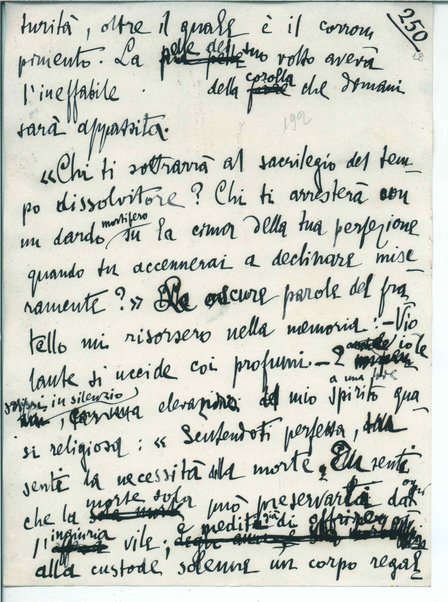 250
turità, oltre il quale è il corrom
pimento. La pelle del tuo volto aveva
l'ineffabile della corolla che domani
sarà appassita.
192
«Chi ti sottrarrà al sacrilegio del tem-
po dissolvitore? Chi ti arresterà con
un dardo mortifero su la cima della tua perfezione
quando tu accennerai a declinare mise
ramente?» Le oscure parole del fra
tello mi risorsero nella memoria: – Vio
lante si uccide coi profumi. – E
in silenzio, con una elevazione del mio spirito qua
si religiosa: «Sentendoti perfessa,
senti la necessità della morte. senti
che la morte sola può preservarti da ogni
l'ingiuria vile; e
alla custode solenne un corpo regal